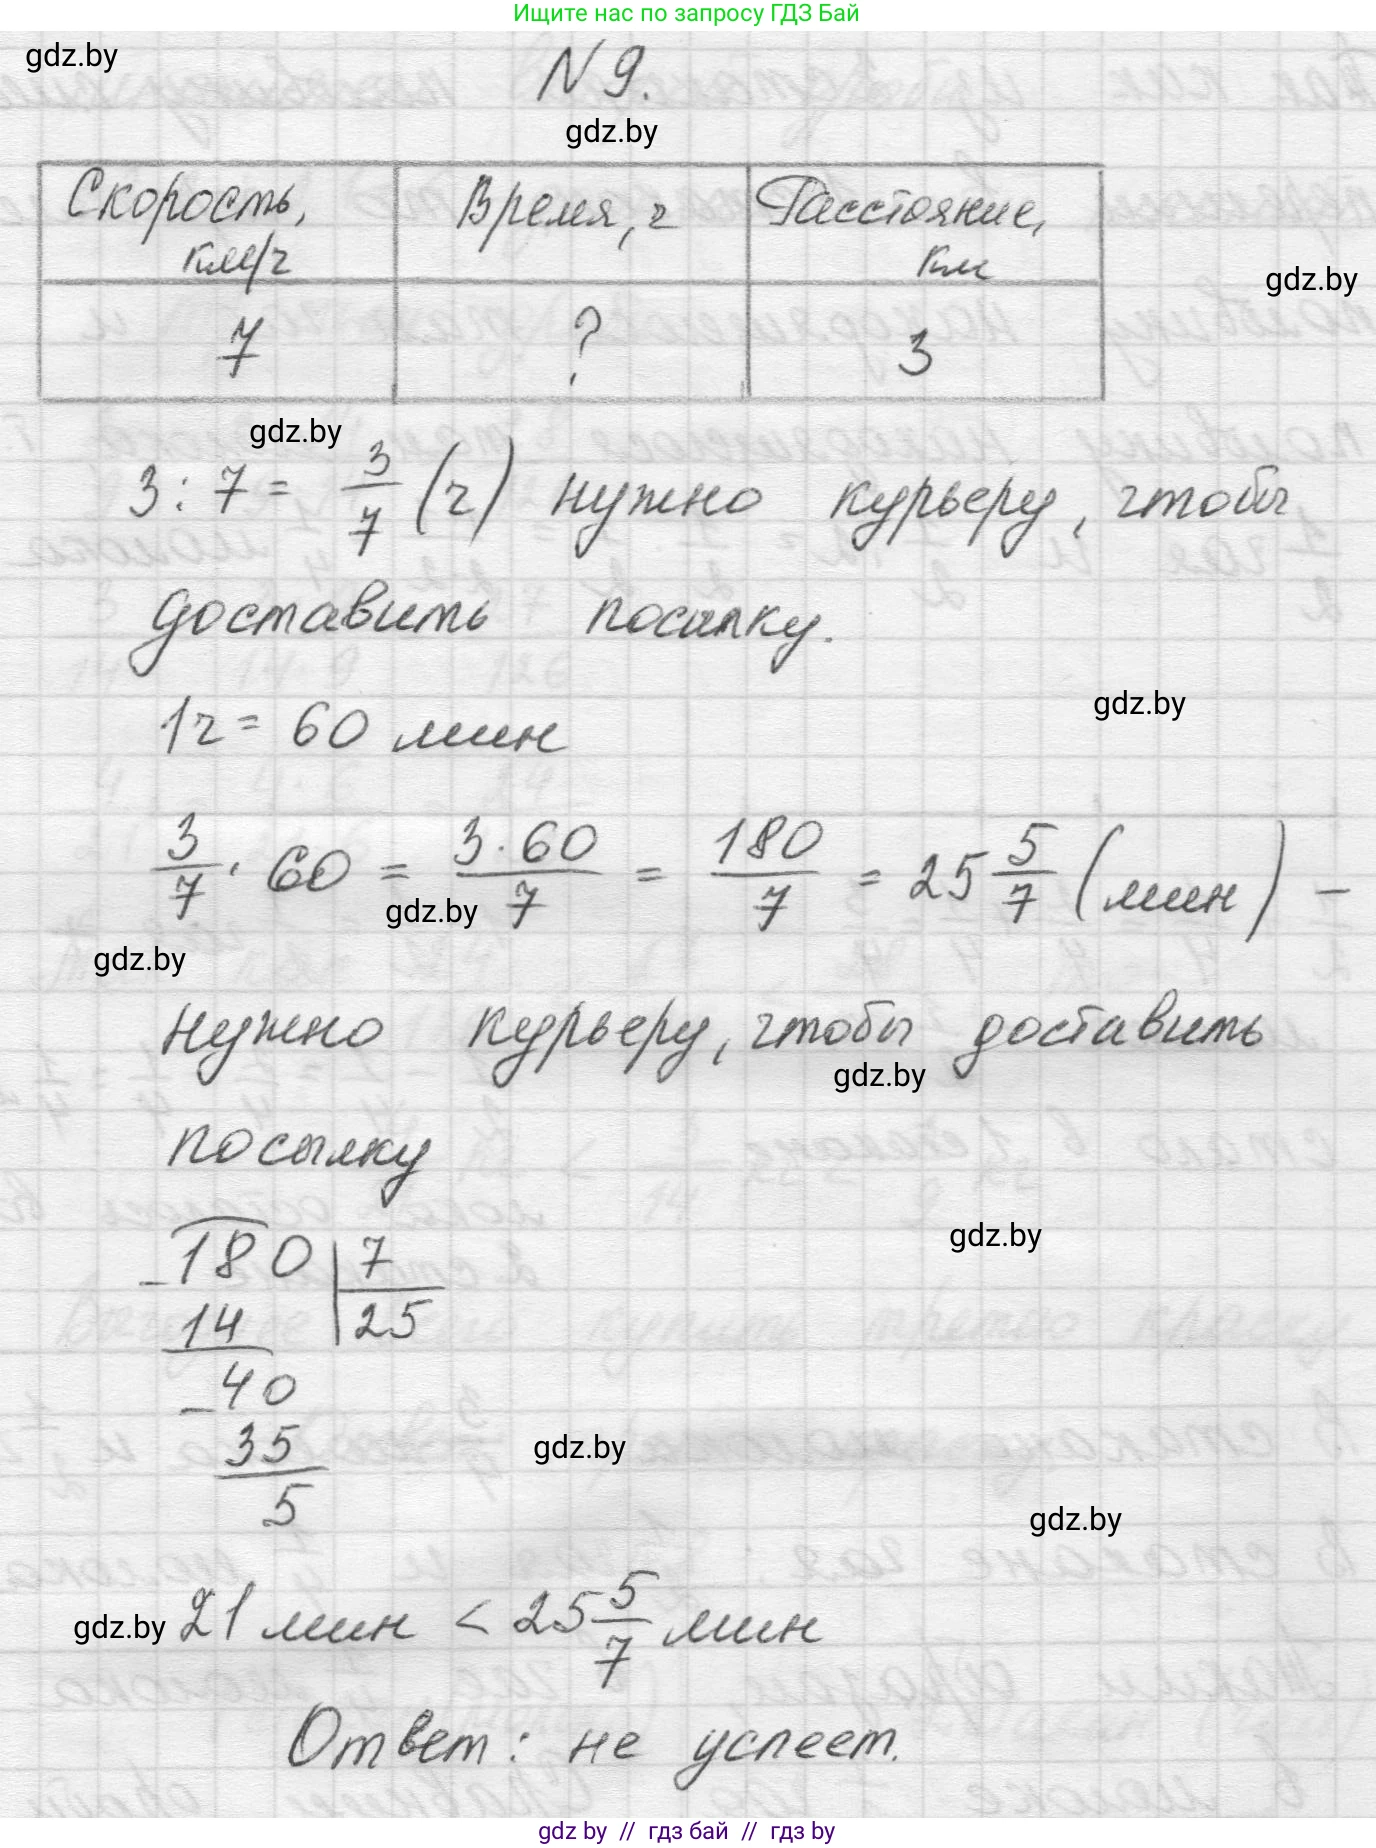 Ищите нас по запросу ГДЗ Бай
gdz.by
N 9.
gdz.by
Скорость, км/ч
Время, ч
Расстояние, км
gdz.by
7
?
3
gdz.by
3 : 7 = 3/7 (ч) нужно курьеру, чтобы
доставить посылку.
gdz.by
1ч = 60 мин
3/7 · 60 = 3·60/7 = 180/7 = 25 5/7 (мин) –
gdz.by
gdz.by
нужно курьеру, чтобы доставить
gdz.by
посылку
gdz.by
180 | 7
– 14 | 25
– 40
35
gdz.by
5
gdz.by
gdz.by
21 мин < 25 5/7 мин
Ответ: не успеет.
gdz.by // гдз бай // gdz by